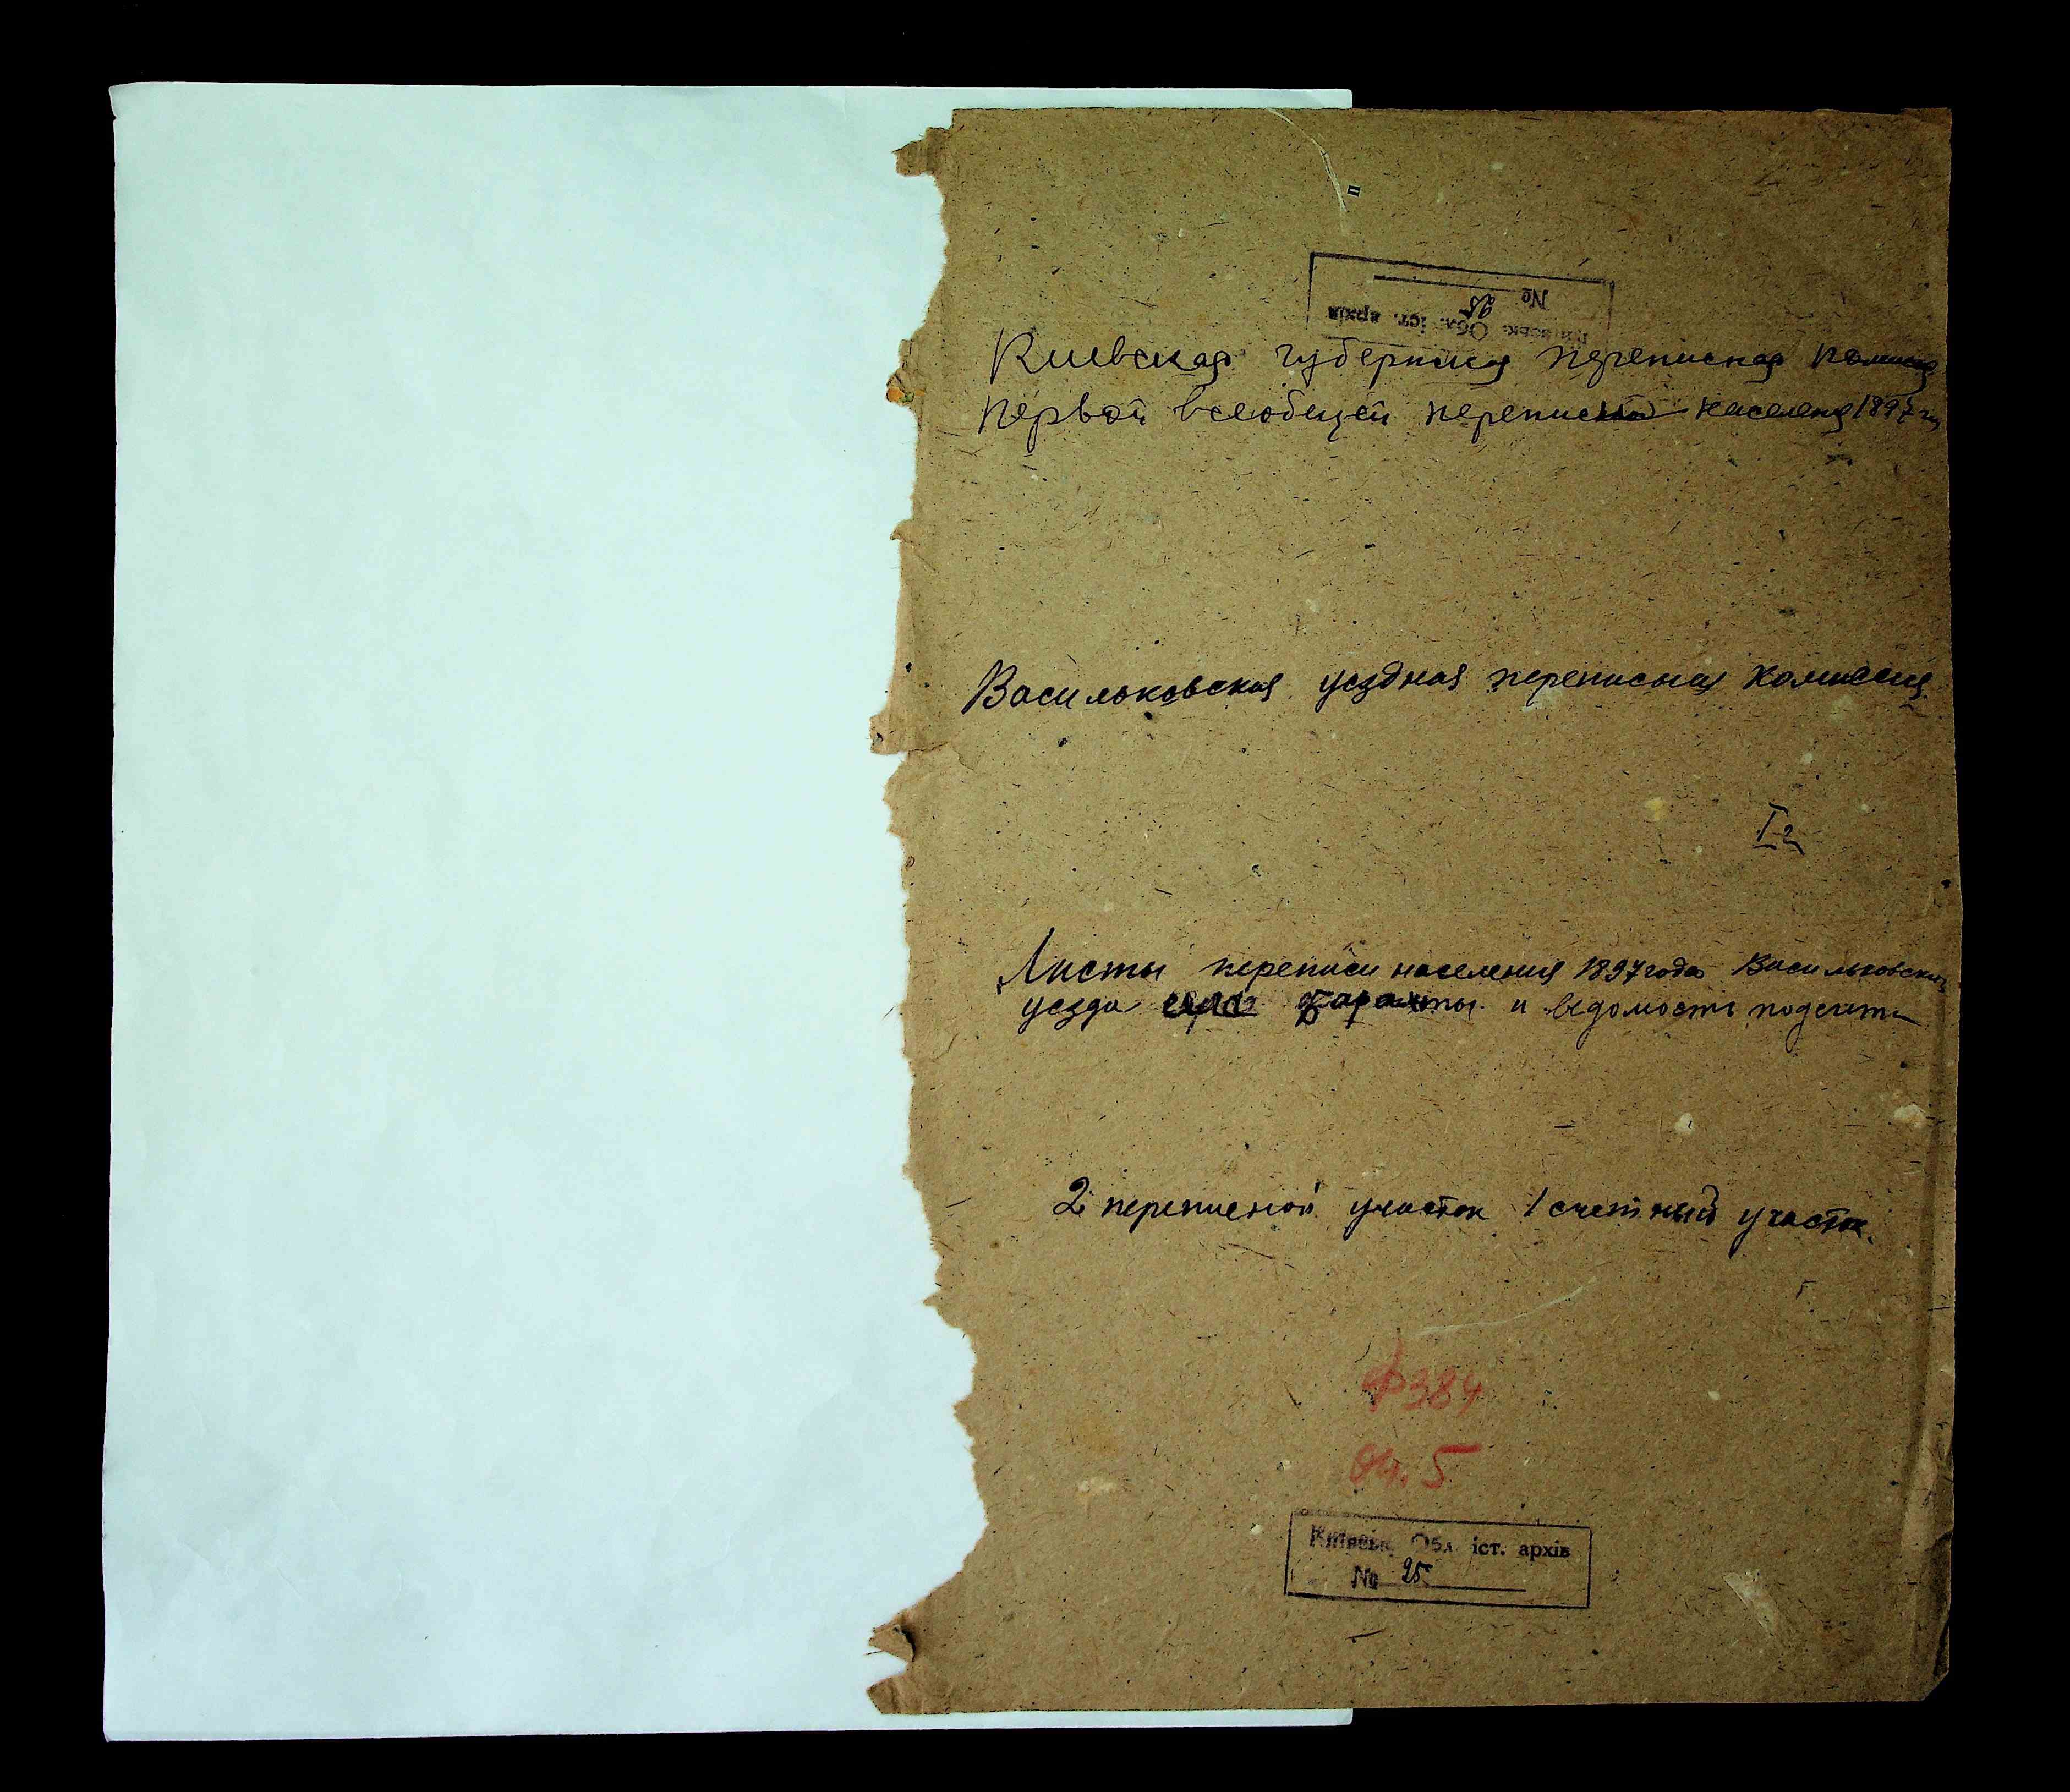 Київськ. Обл. іст. архів
№ 25
Киевская губерния переписная комисия
Первой всеобщей переписи населения 1897 г.
Васильковская уездная переписная комиссия.
I 2
Листы переписи населения 1897 года Васильковский
уезда и ведомости подсчета
2 переписной участок 1 счетный участок.
Ф 384
Оп. 5
Київськ. Обл. іст. архів
№ 25